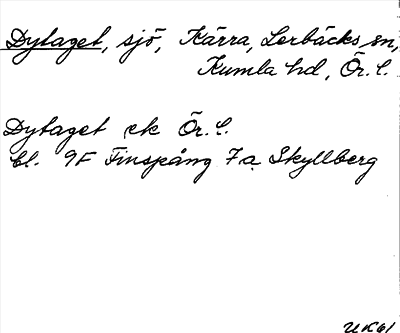 Dytaget, sjö, Kärra, Lerbäcks sn,
Kumla hd, Ör. l.
Dytaget ek Ör. l.
bl. 9F Finspång 7a Skyllberg
UK61